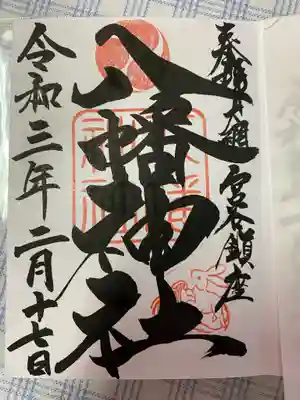 奉拝 大網 宮谷鎮座
八幡神社
令和三年二月十七日